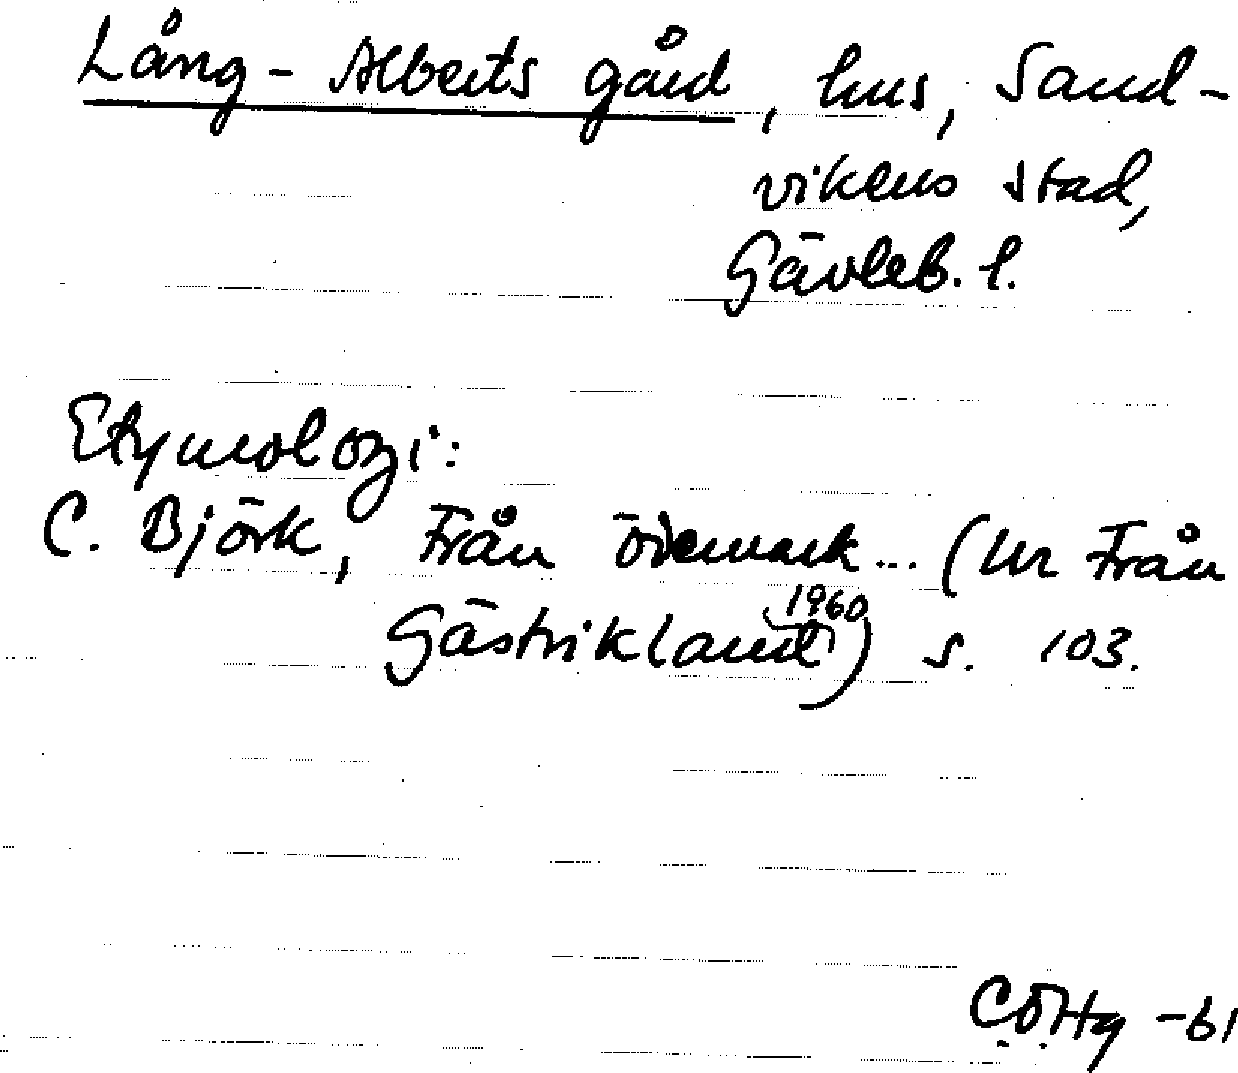 Lång-Alberts gård, hus, Sand-
vikens stad,
Gävleb. l.
Etymologi:
C. Björk, Från ödemark... (Ur Från
Gästrikland 1960) s. 103.
CÖHg -61